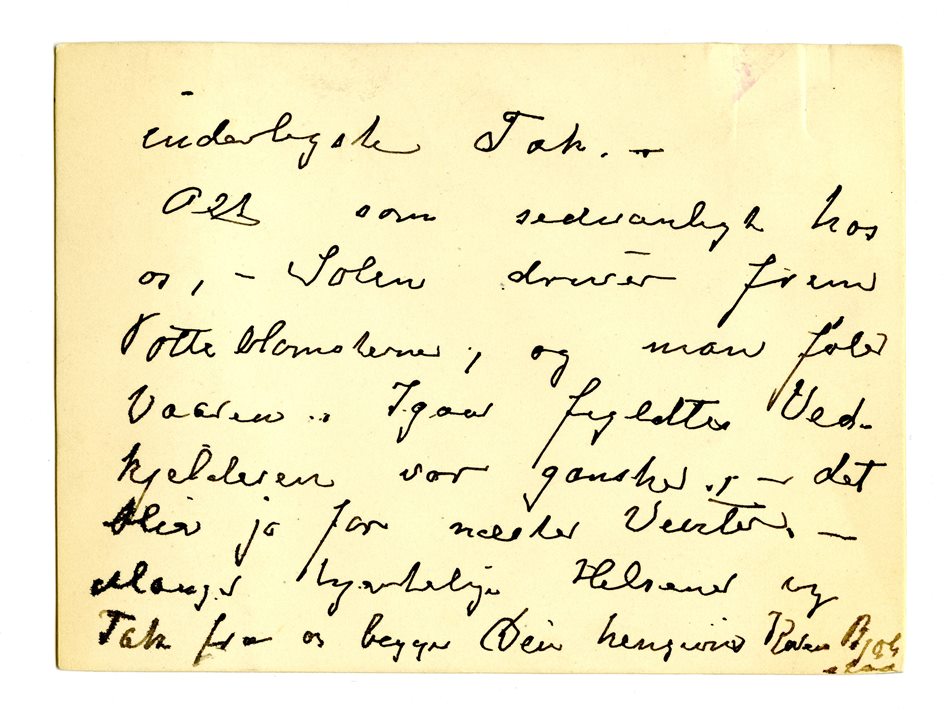 inderligste Tak. –
Alt som sedvanligt hos
os, – Solen driver frem
Potteblomsterne, og man føler
Vaaren. Igaar fyldtes Ved-
kjelderen vor ganske, – det
blir jo for næste Vinter. –
Mange hjertelige Helsener og
Tak fra os begge Din hengivne